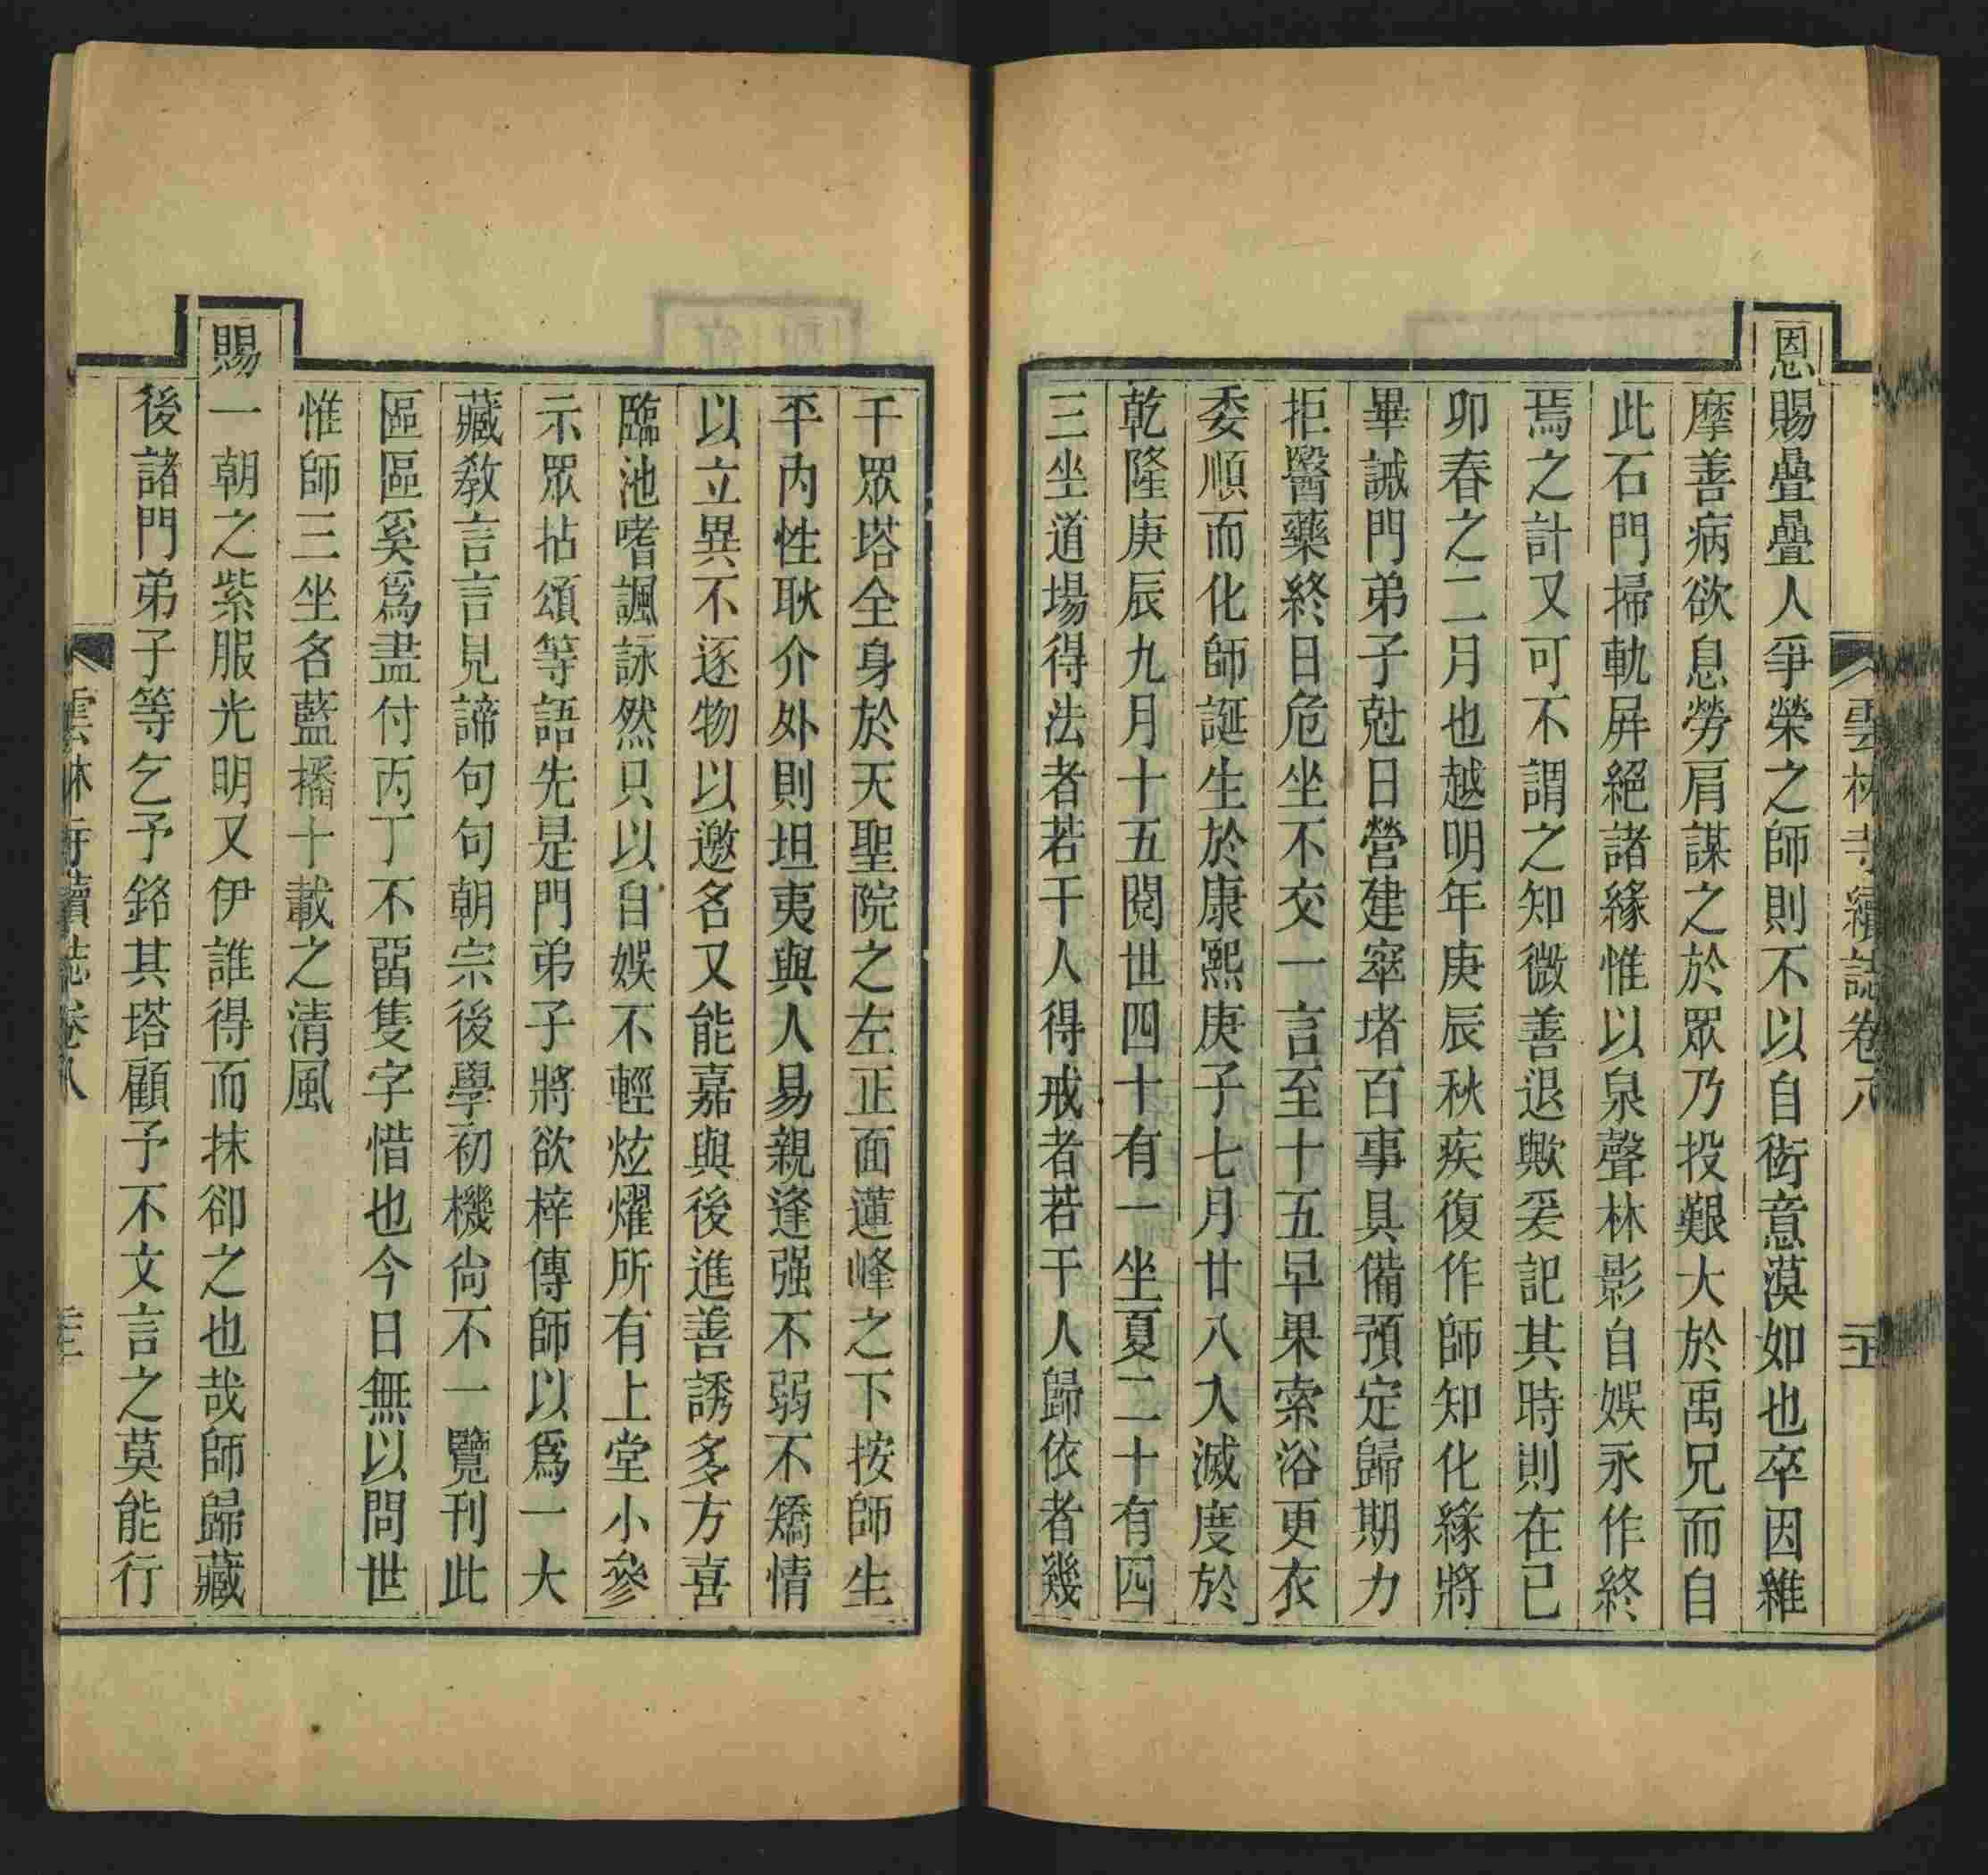 雲林寺續誌卷八
恩賜疊疊人爭榮之師則不以自衒意漠如也卒因雜
摩善病欲息勞肩謀之於眾乃投艱大於禹兄而自
此石門掃軌屏絕諸緣惟以泉聲林影自娛永作終
焉之計又可不謂之知微善退歟爰記其時則在己
卯春之二月也越明年庚辰秋疾復作師知化緣將
畢誡門弟子尅日營建窣堵百事具備預定歸期力
拒醫藥終日危坐不交一言至十五早果索浴更衣
委順而化師誕生於康熙庚子七月廿八入滅度於
乾隆庚辰九月十五閱世四十有一坐夏二十有四
三坐道場得法者若干人得戒者若干人歸依者幾
千眾塔全身於天聖院之左正面蓮峰之下按師生
平內性耿介外則坦夷與人易親逢强不弱不矯情
以立異不逐物以邀名又能嘉與後進善誘多方喜
臨池嗜諷詠然只以自娛不輕炫燿所有上堂小參
示眾拈頌等語先是門弟子將欲梓傳師以爲一大
藏教言言見諦句句朝宗後學初機尙不一覽刊此
區區奚爲盡付丙丁不畱隻字惜也今日無以問世
惟師三坐名藍播十載之清風
賜一朝之紫服光明又伊誰得而抹卻之也哉師歸藏
後諸門弟子等乞予銘其塔顧予不文言之莫能行
雲林寺續誌卷八